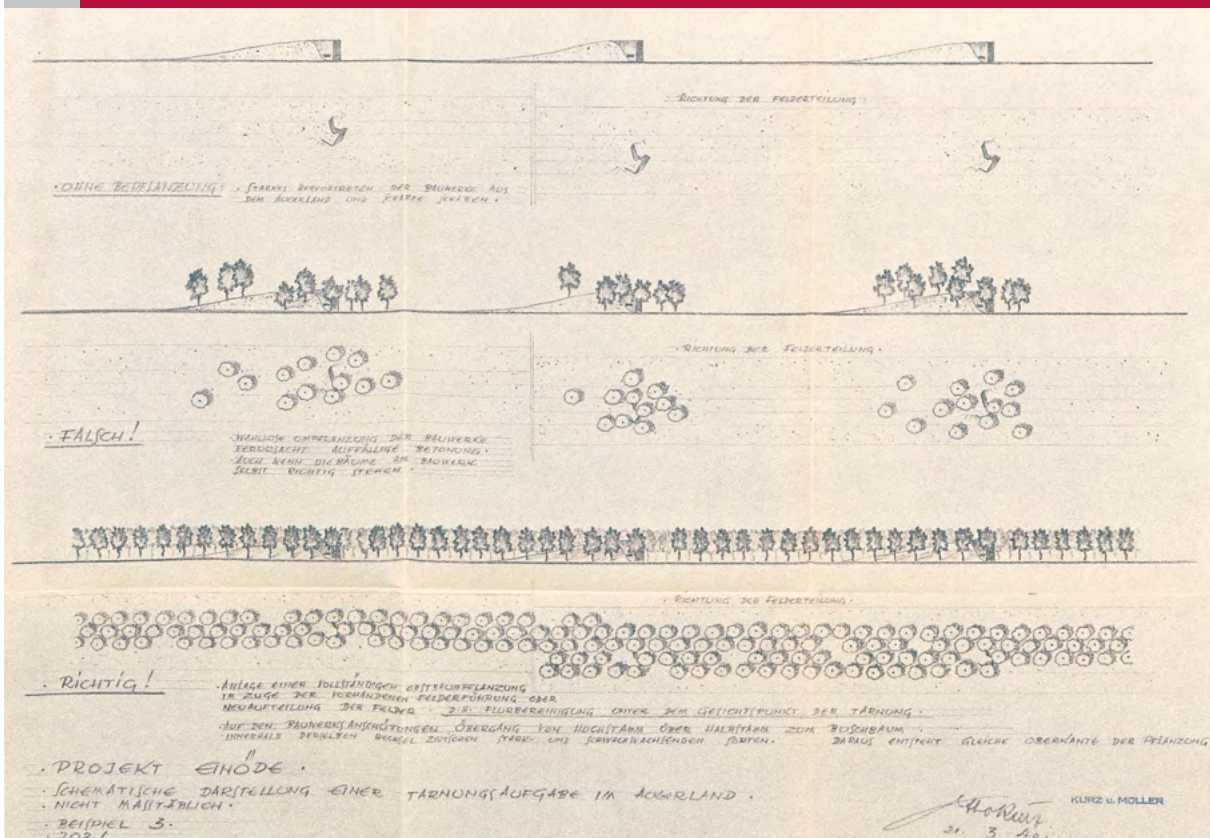 · RICHTUNG DER FELDERTEILUNG ·
· OHNE BEPFLANZUNG: · STARKES HERVORTRETEN DER BAUWERKE AUS
DEM ACKERLAND UND SCHARFE SCHATTEN ·
· RICHTUNG DER FELDERTEILUNG ·
· FALSCH!
· WAHLLOSE UMPFLANZUNG DER BAUWERKE
VERURSACHT AUFFÄLLIGE BETONUNG ·
· AUCH WENN DIE BÄUME AM BAUWERK
SELBST RICHTIG STEHEN ·
· RICHTUNG DER FELDERTEILUNG ·
· RICHTIG!
· ANLAGE EINER VOLLSTÄNDIGEN OBSTBAUMPFLANZUNG
IM ZUGE DER VORHANDENEN FELDERFÜHRUNG ODER
NEUAUFTEILUNG DER FELDER · D.H. FLURBEREINIGUNG UNTER DEM GESICHTSPUNKT DER TARNUNG ·
· AUF DEN BAUWERKSANSCHÜTTUNGEN ÜBERGANG VON HOCHSTAMM ÜBER HALBSTAMM ZUM BUSCHBAUM ·
· INNERHALB DERSELBEN WECHSEL ZWISCHEN STARK- UND SCHWACHWACHSENDEN SORTEN · DARAUS ENTSTEHT GLEICHE OBERKANTE DER PFLANZUNG
· PROJEKT EINÖDE ·
· SCHEMATISCHE DARSTELLUNG EINER TARNUNGSAUFGABE IM ACKERLAND ·
· NICHT MASSTÄBLICH ·
· BEISPIEL 3 ·
KURZ u. MÖLLER
21. 3